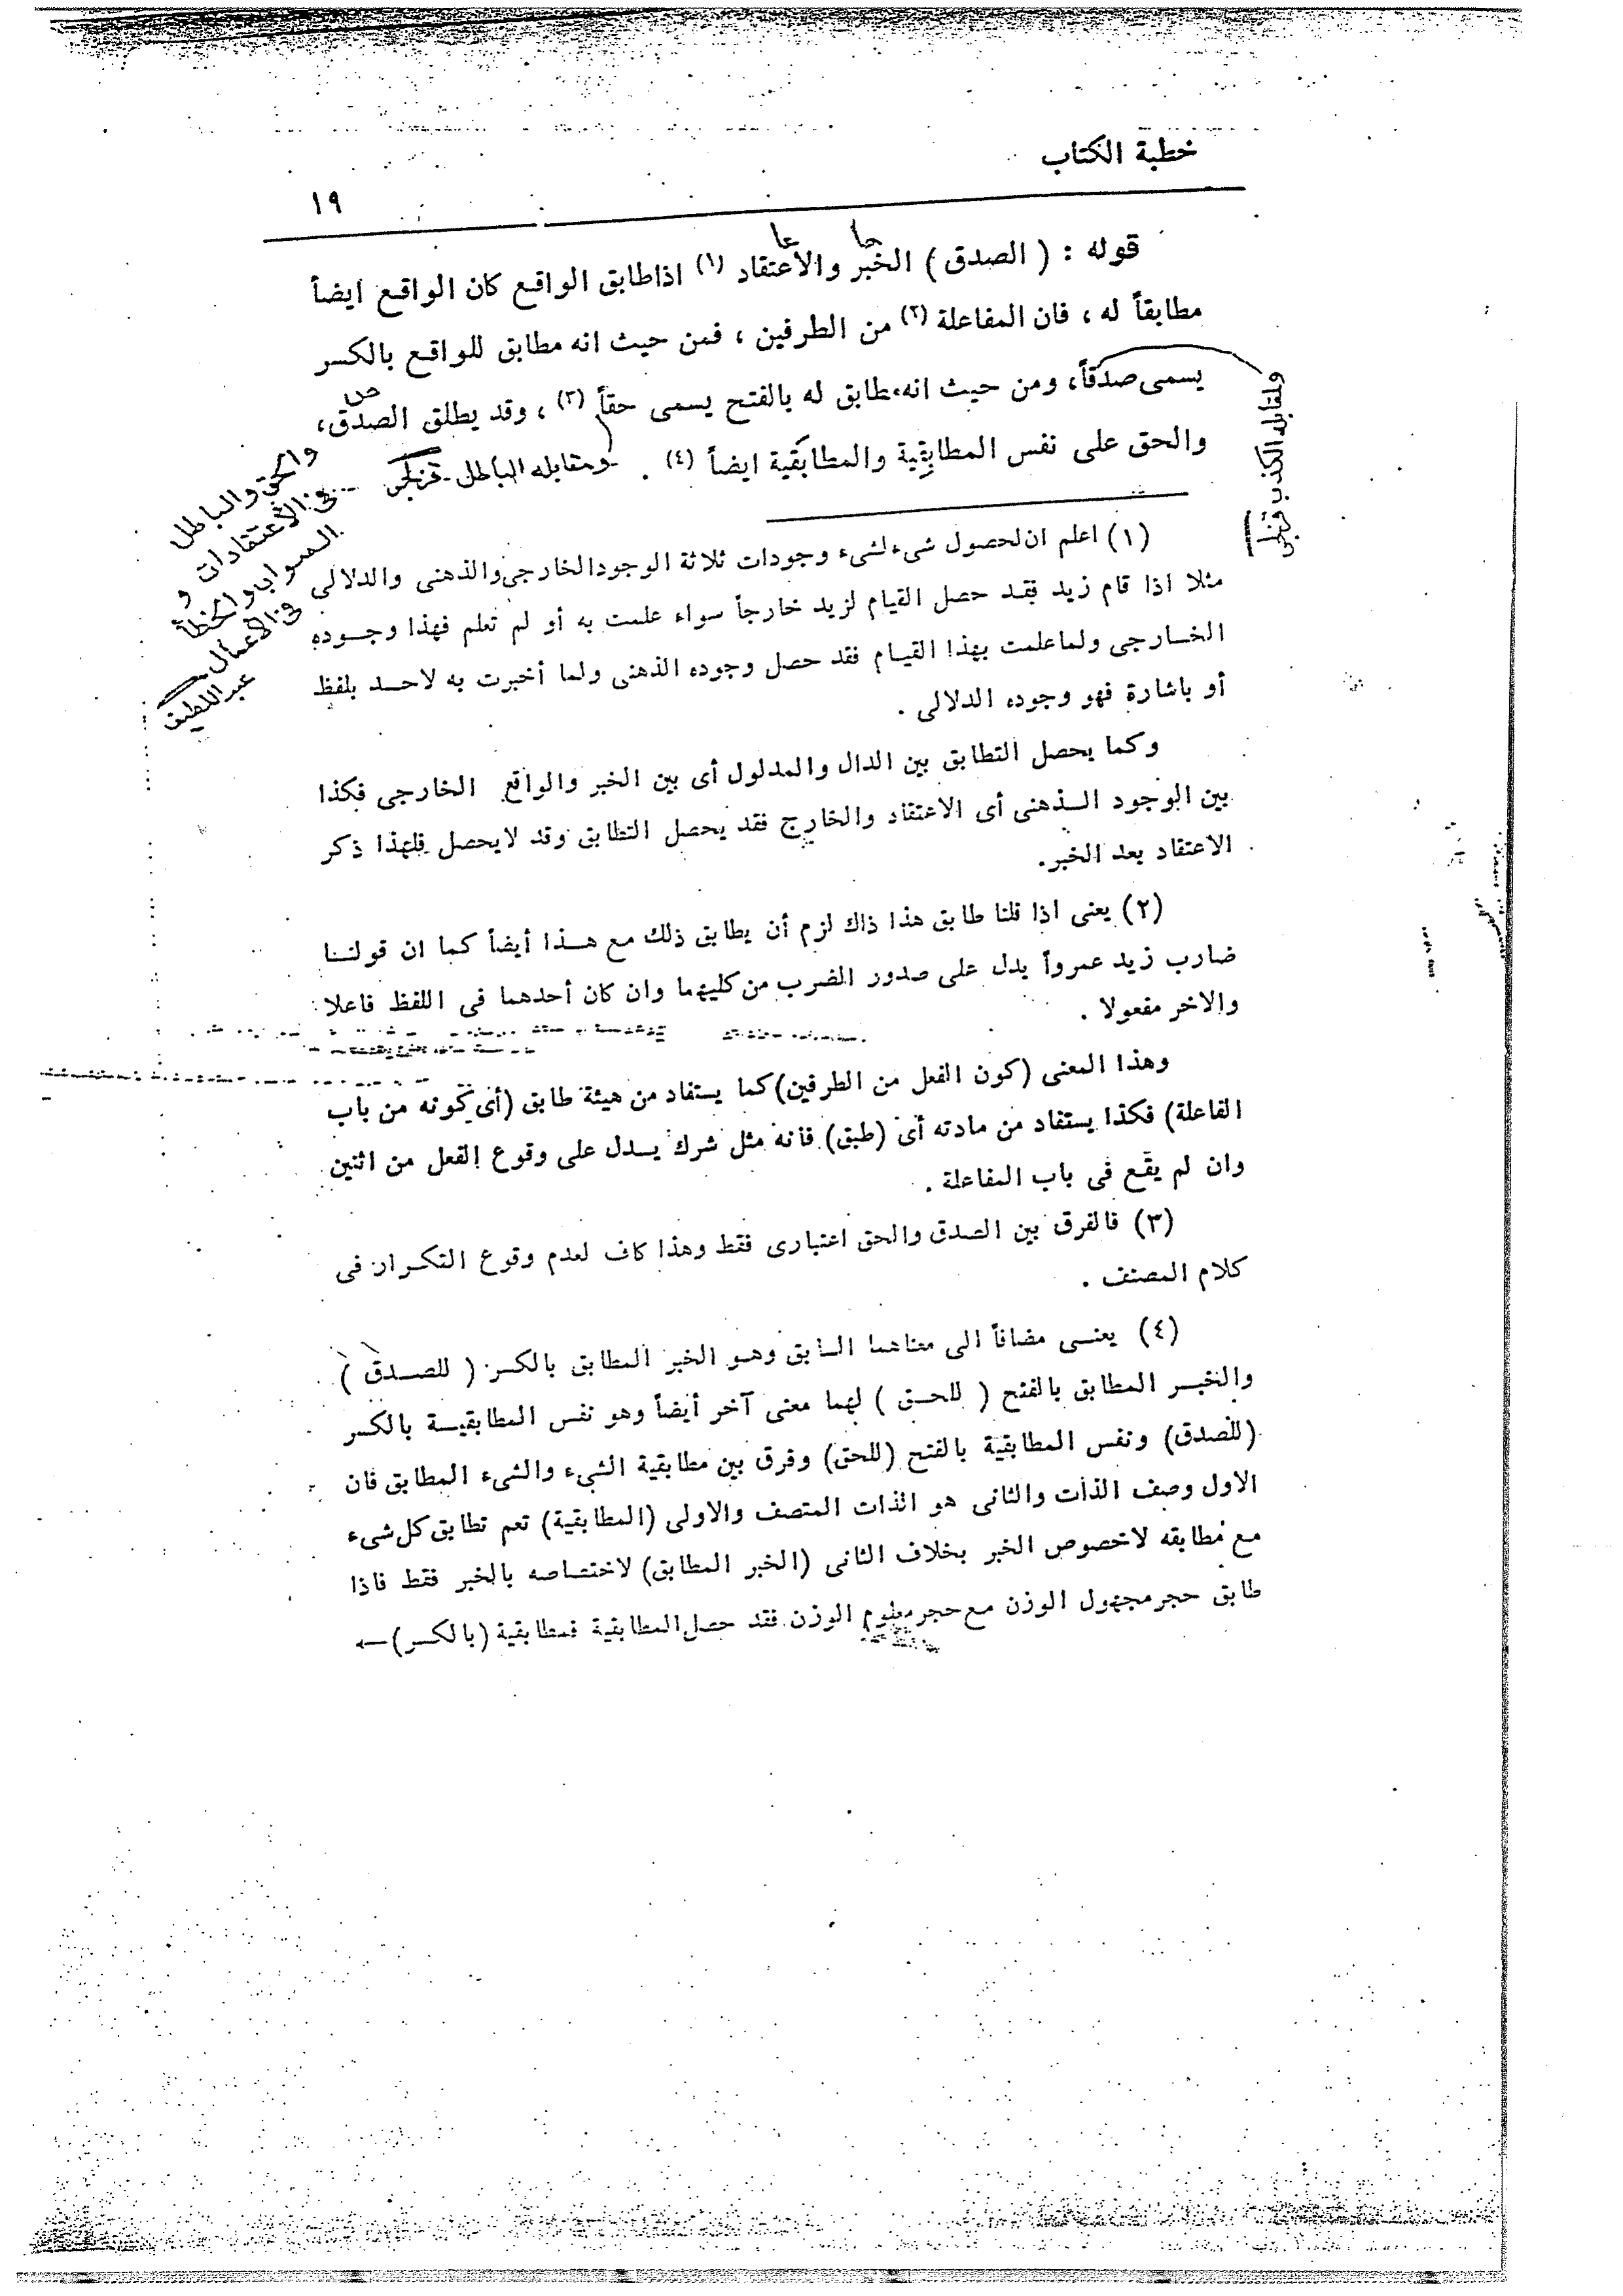 خطبة الكتاب
١٩
قوله : ( الصدق ) الخبر والاعتقاد (١) اذاطابق الواقع كان الواقع ايضاً
مطابقاً له ، فان المفاعلة (٢) من الطرفين ، فمن حيث انه مطابق للواقع بالكسر
يسمى صدقاً، ومن حيث انه مطابق له بالفتح يسمى حقاً (٣) ، وقد يطلق الصدق،
والحق على نفس المطابقية والمطابقية ايضاً (٤) .
ومقابله الباطل
ومقابله الكذب
والحق والباطل
فى الاعتقادات و
الصواب والخطأ
فى الأعمال
عبد اللطيف
(١) اعلم ان لحصول شىء لشىء وجودات ثلاثة الوجود الخارجى والذهنى والدلالى
مثلا اذا قام زيد فقد حصل القيام لزيد خارجاً سواء علمت به أو لم تعلم فهذا وجـوده
الخـارجى ولما علمت بهذا القيـام فقد حصل وجوده الذهنى ولما أخبرت به لاحـد بلفظ
أو باشارة فهو وجوده الدلالى .
وكما يحصل التطابق بين الدال والمدلول أى بين الخبر والواقع الخارجى فكذا
بين الوجود الـذهنى أى الاعتقاد والخارج فقد يحصل التطابق وقد لايحصل فلهذا ذكر
الاعتقاد بعد الخبر.
(٢) يعنى اذا قلنا طابق هذا ذاك لزم أن يطابق ذلك مع هـذا أيضاً كما ان قولنـا
ضارب زيد عمرواً يدل على صدور الضرب من كليهما وان كان أحدهما فى اللفظ فاعلا
والاخر مفعولا .
وهذا المعنى (كون الفعل من الطرفين) كما يستفاد من هيئة طابق (أى كونه من باب
الفاعلة) فكذا يستفاد من مادته أى (طبق) فانه مثل شرك يـدل على وقوع الفعل من اثنين
وان لم يقع فى باب المفاعلة .
(٣) فالفرق بين الصدق والحق اعتبارى فقط وهذا كاف لعدم وقوع التكـرار فى
كلام المصنف .
(٤) يعنـى مضافاً الى معناهما السابق وهـو الخبر المطابق بالكسر ( للصـدق )
والخبـر المطابق بالفتح ( للحـق ) لهما معنى آخر أيضاً وهو نفس المطابقيـة بالكسر
(للصدق) ونفس المطابقية بالفتح (للحق) وفرق بين مطابقية الشىء والشىء المطابق فان
الاول وصف الذات والثانى هو الذات المتصف والاولى (المطابقية) تعم تطابق كل شىء
مع مطابقه لاخصوص الخبر بخلاف الثانى (الخبر المطابق) لاختصاصه بالخبر فقط فاذا
طابق حجر مجهول الوزن مع حجر معلوم الوزن فقد حصل المطابقية فمطابقية (بالكسر) ←